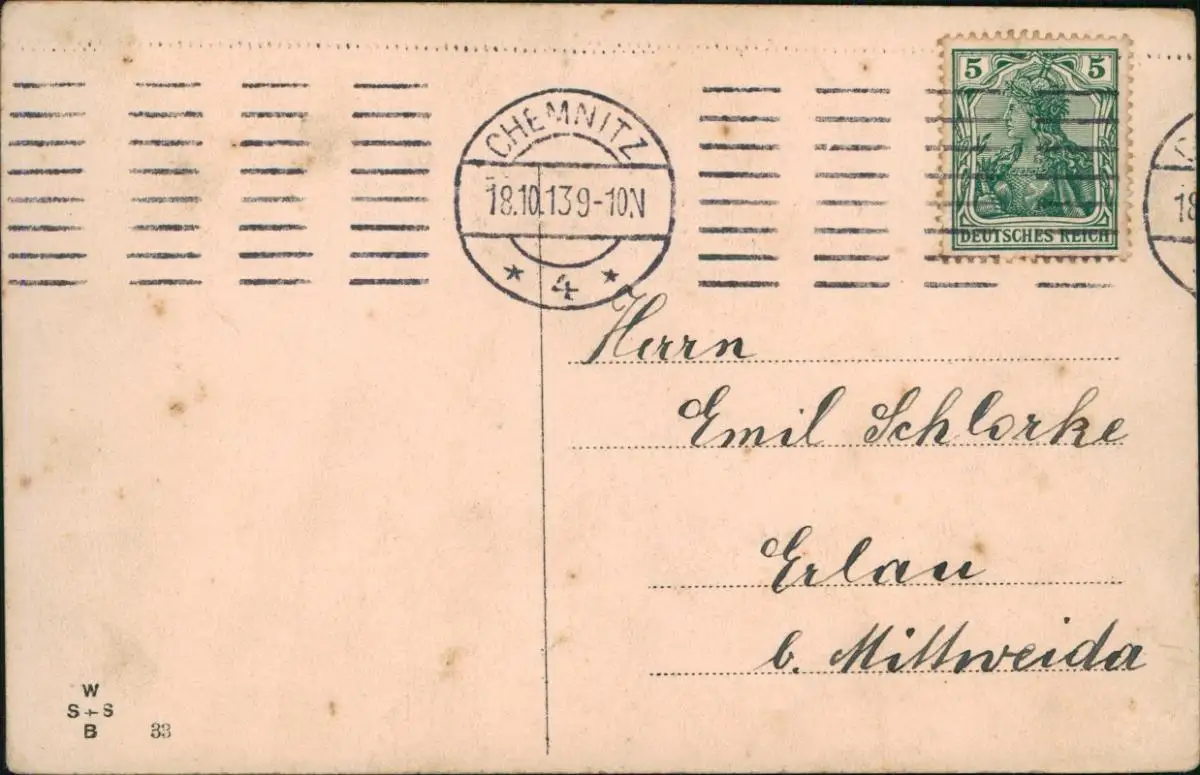 5 5
DEUTSCHES REICH
CHEMNITZ
18.10.13 9-10N
* 4 *
18
Herrn
Emil Schlorke
Erlau
b. Mittweida
W
S+S
B 33